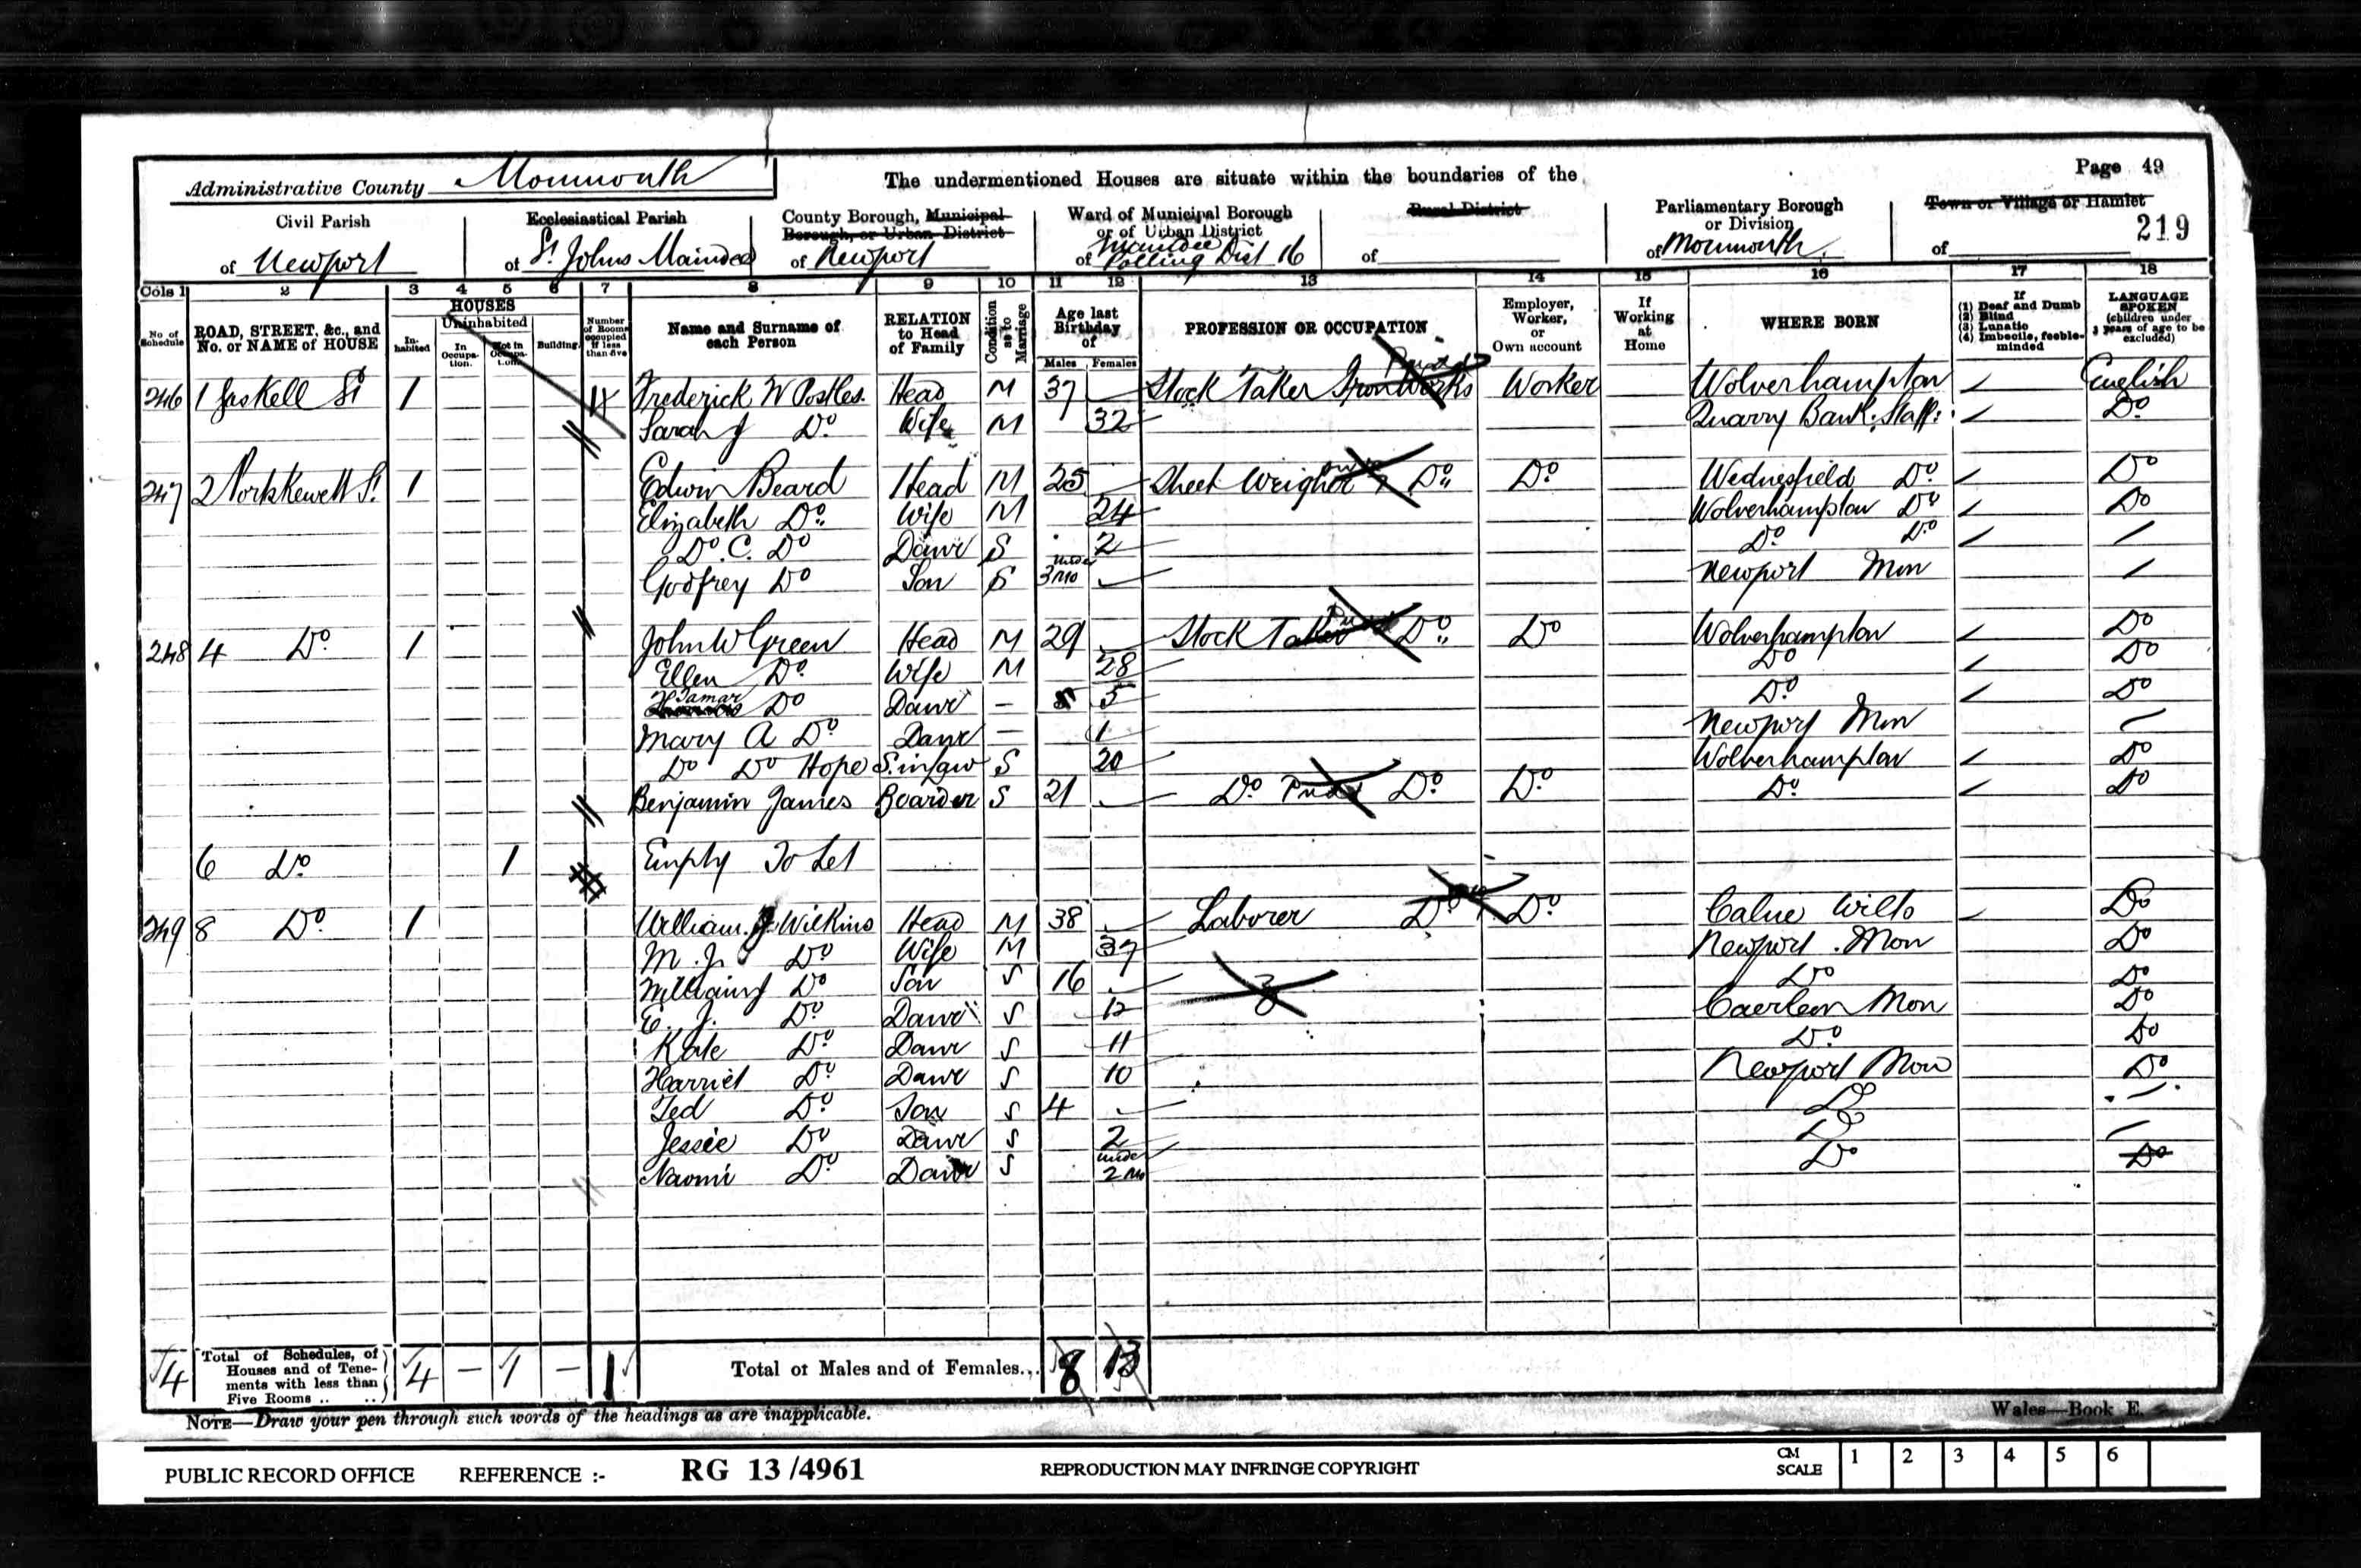 Administrative County Monmouth
The undermentioned Houses are situate within the boundaries of the
Page 49
219
Civil Parish of Newport
Ecclesiastical Parish of St. Johns Maindee
County Borough, Municipal Borough, or Urban District of Newport
Ward of Municipal Borough or of Urban District of Maindee Polling Dist 16
Rural District of
Parliamentary Borough or Division of Monmouth
Town or Village or Hamlet of
Cols 1 2 3 4 5 6 7 8 9 10 11 12 13 14 15 16 17 18
No. of Schedule
ROAD, STREET, &c., and No. or NAME of HOUSE
HOUSES
Inhabited
Uninhabited
In Occupation.
Not in Occupation.
Building.
Number of Rooms occupied if less than five
Name and Surname of each Person
RELATION to Head of Family
Condition as to Marriage
Age last Birthday of
Males Females
PROFESSION OR OCCUPATION
Employer, Worker, or Own account
If Working at Home
WHERE BORN
If (1) Deaf and Dumb (2) Blind (3) Lunatic (4) Imbecile, feeble-minded
LANGUAGE SPOKEN (children under 3 years of age to be excluded)
246 1 Gaskell St 1 4 Frederick W Postles. Head M 37 Stock Taker Iron Works Worker Wolverhampton English
Sarah J Do Wife M 32 Quarry Bank. Staff: Do
247 2 Portskewett St. 1 Edwin Beard Head M 25 Sheet Weigher Do Do Wednesfield Do Do
Elizabeth Do Wife M 24 Wolverhampton Do Do
Do. C. Do Dawr S 2 Do Do
Godfrey Do Son S under 3 mo Newport Mon
248 4 Do 1 John W Green Head M 29 Stock Taker Do Do Wolverhampton Do
Ellen Do Wife M 28 Do Do
Tamar Do Dawr — 5 Do Do
Mary A Do Dawr — 1 Newport Mon
Do Do Hope S. in law S 20 Wolverhampton Do
Benjamin James Boarder S 21 Do Do Do Do Do
6 Do 1 Empty To Let
249 8 Do 1 William. J. Wilkins Head M 38 Laborer Do Do Calne Wilts Do
M. J. Do Wife M 37 Newport. Mon Do
William J Do Son S 16 Do Do
E. J. Do Dawr S 12 Caerleon Mon Do
Kate Do Dawr S 11 Do Do
Harriet Do Dawr S 10 Newport Mon Do
Ted Do Son S 4 Do
Jessie Do Dawr S 2 Do
Naomi Do Dawr S under 2 mo Do Do
4 Total of Schedules, of Houses and of Tenements with less than Five Rooms .. .. 4 — 1 — 1 Total of Males and of Females... 8 13
NOTE—Draw your pen through such words of the headings as are inapplicable.
Wales—Book E.
PUBLIC RECORD OFFICE REFERENCE :- RG 13/4961 REPRODUCTION MAY INFRINGE COPYRIGHT CM SCALE 1 2 3 4 5 6